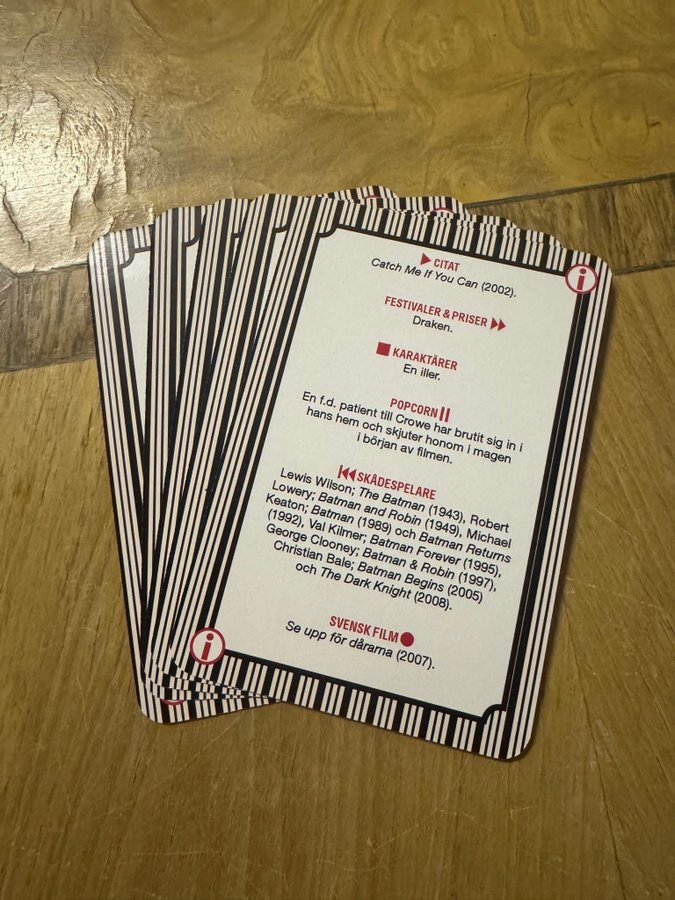 CITAT
Catch Me If You Can (2002).
FESTIVALER & PRISER
Draken.
KARAKTÄRER
En iller.
POPCORN
En f.d. patient till Crowe har brutit sig in i
hans hem och skjuter honom i magen
i början av filmen.
SKÅDESPELARE
Lewis Wilson; The Batman (1943), Robert
Lowery; Batman and Robin (1949), Michael
Keaton; Batman (1989) och Batman Returns
(1992), Val Kilmer; Batman Forever (1995),
George Clooney; Batman & Robin (1997),
Christian Bale; Batman Begins (2005)
och The Dark Knight (2008).
SVENSK FILM
Se upp för dårarna (2007).